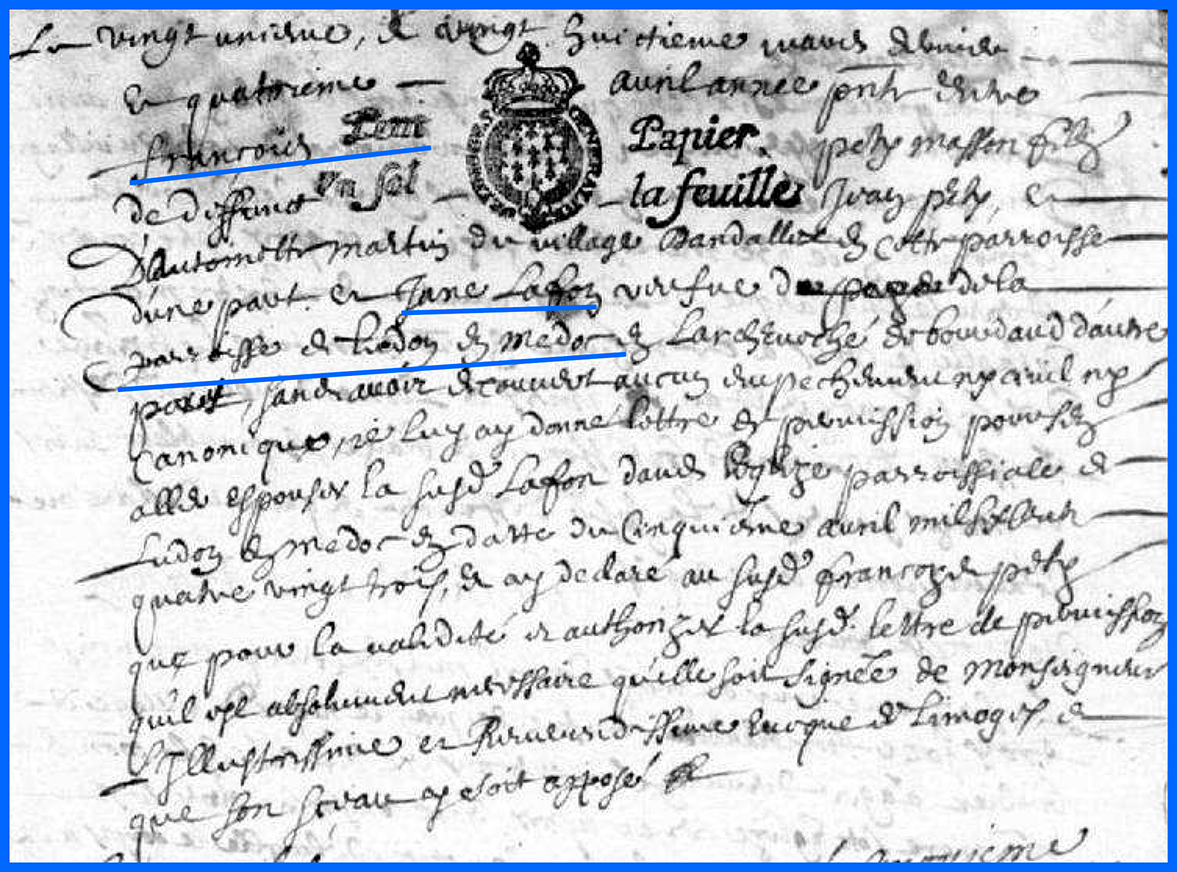 Le vingt uniesme, & vingt huictieme mars dernier
& quatrieme avril annee pnt entre
françois Peti Papier pety masson filz
de deffunct vn sol la feuille Jean pety, &
D'Automette martin du village Dandalle en cette parroisse
d'une part et Jane Lafon veufue de la
parroisse de Ledon en medoc en Larcheveché de bourdaud dautre
part, sans avoir decouvert aucun empechement ny civil ny
Canonique, ie luy ay donne lettre de permission pour sen
aller espouser la susd Lafon dans leglize parroissiale de
Ludon en medoc en datte du Cinquiesme avril mil six cent
quatre vingt trois, & ay declaré au susd françois pety
que pour la validité et authorizer la susd. lettre de permission
qu'il est absolument necessaire qu'elle soit signée de Monseigneur
L'Illustrissime et Reverendissime Eveque de Limoges, &
que son sceau y soit apposé